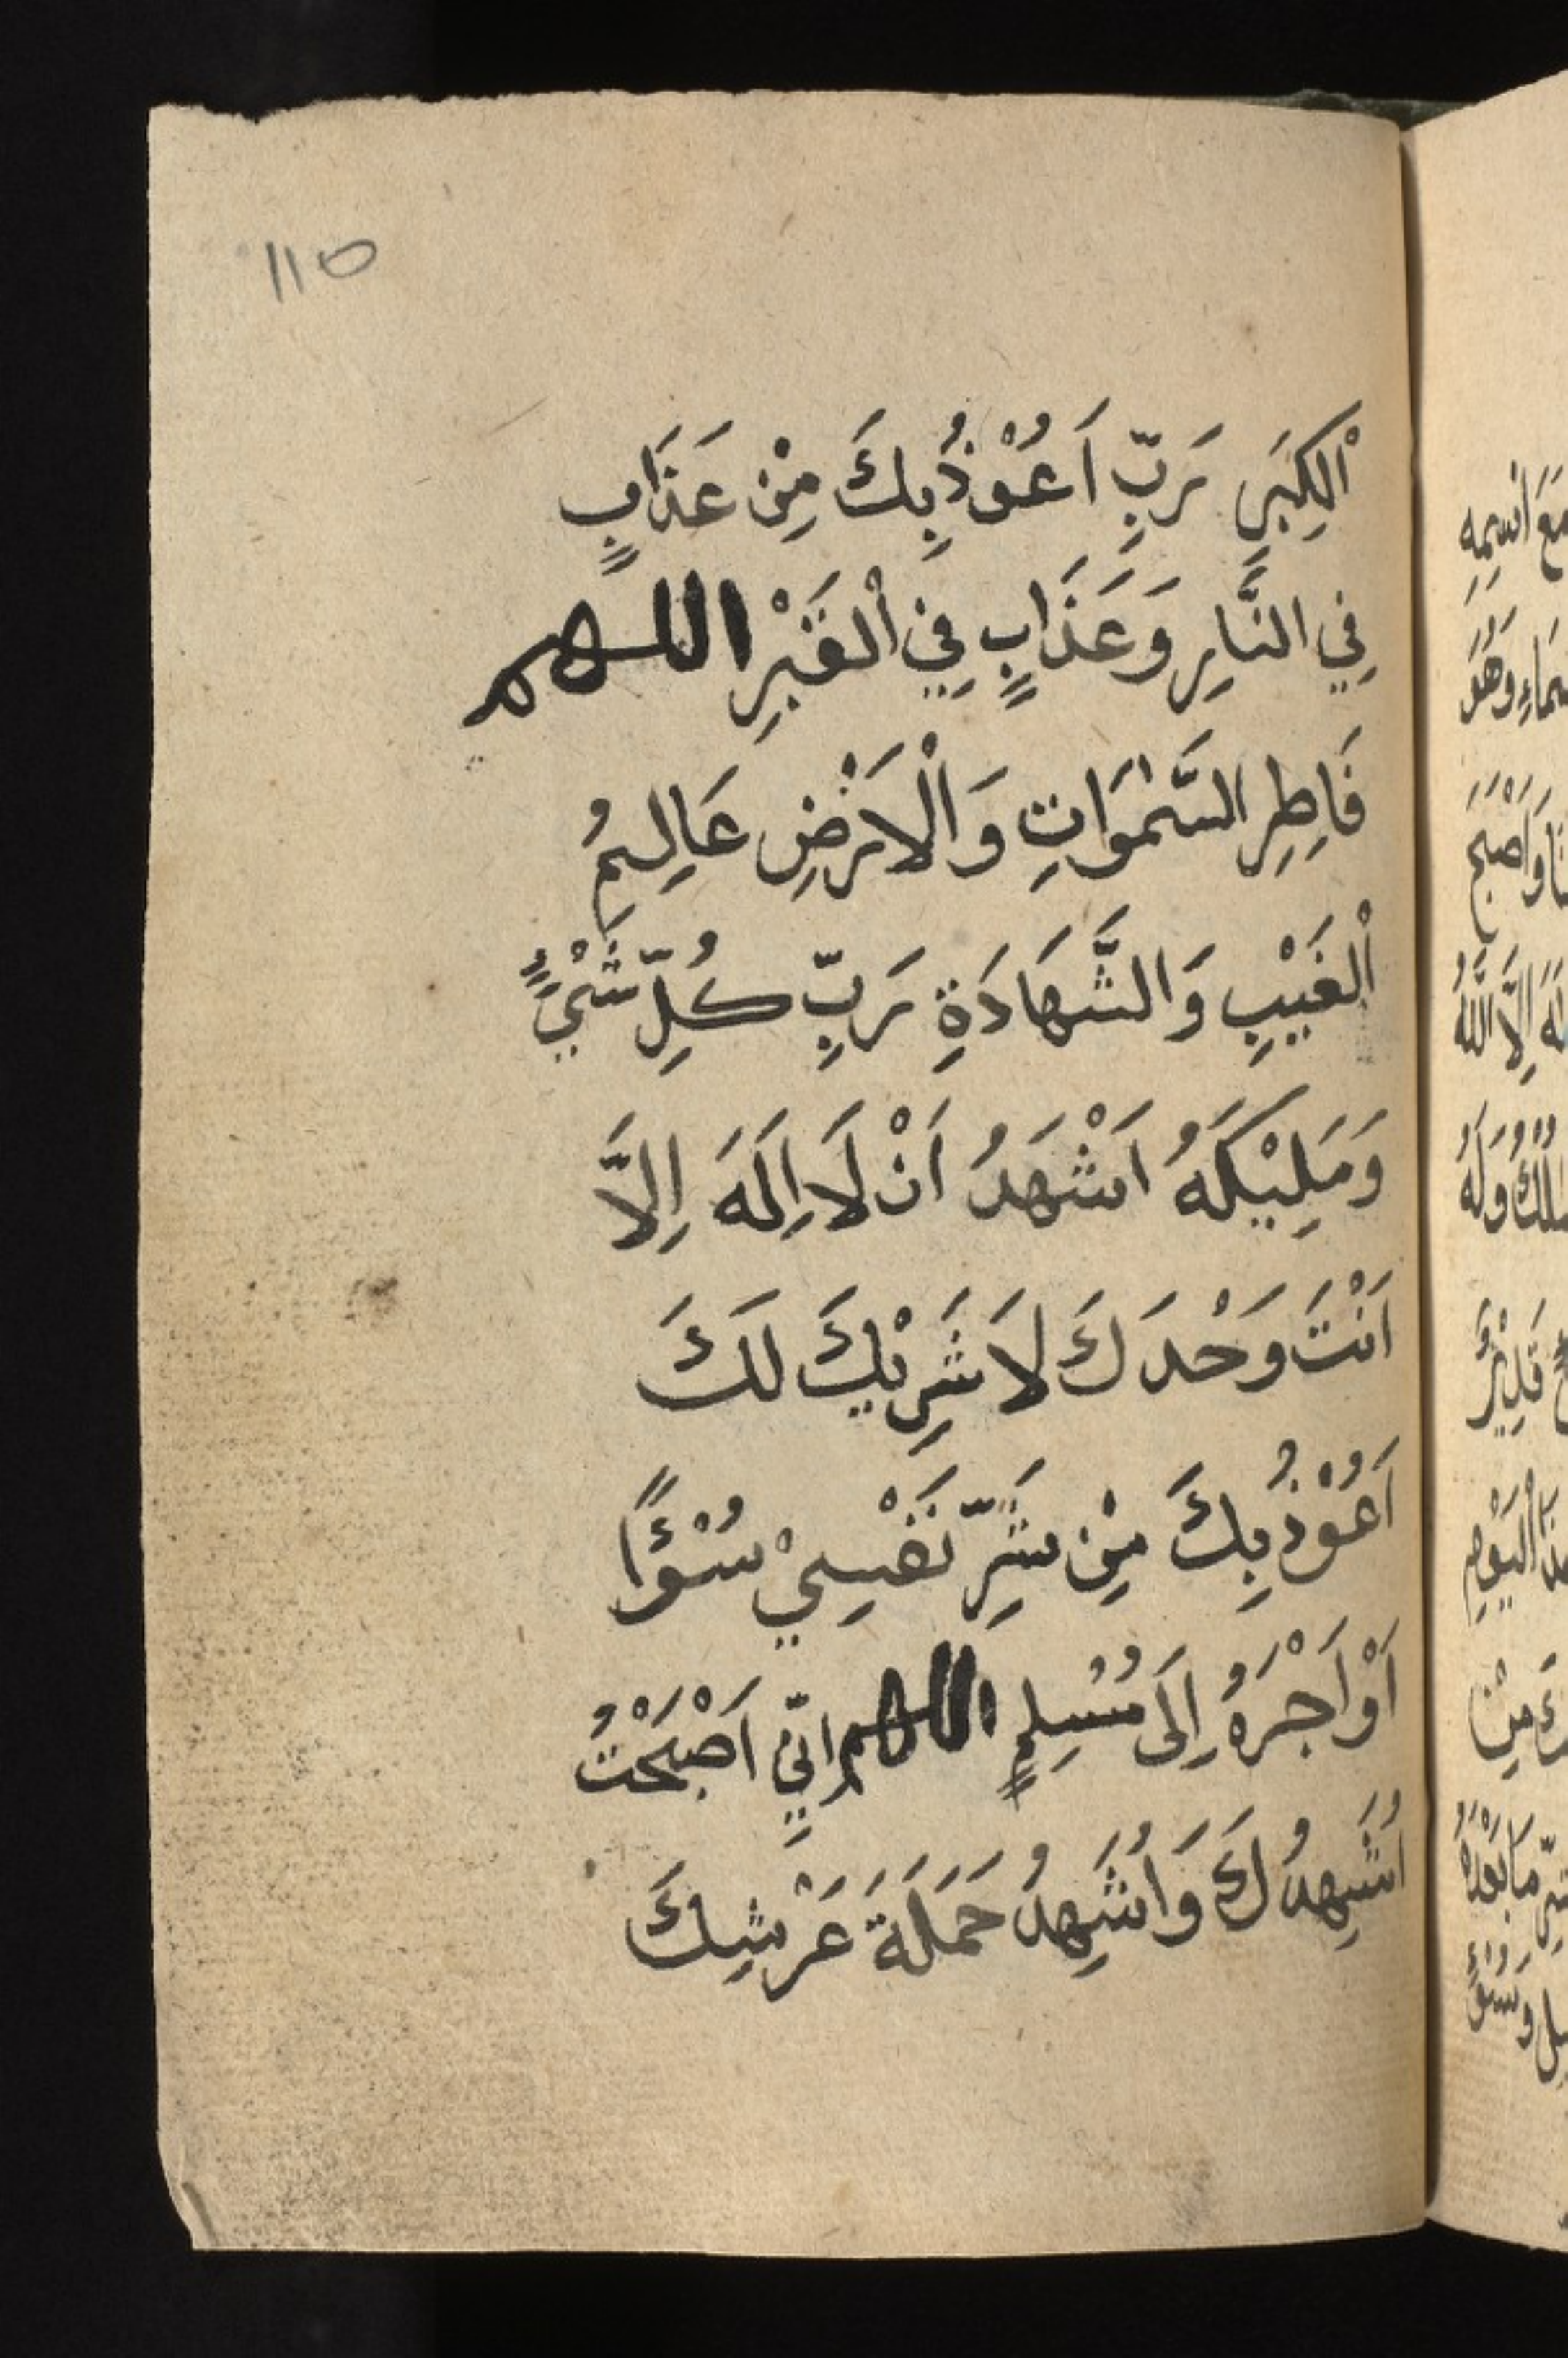 ١١٥
اْلكِبَرِ رَبِّ اَعُوْذُبِكَ مِنْ عَذَابٍ
فِي النَّارِ وَعَذَابٍ فِي اْلقَبْرِ اللهم
فَاطِرِ السَّمٰوَاتِ وَاْلاَرْضِ عَالِمُ
اْلغَيْبِ وَالشَّهَادَةِ رَبِّ كُلِّ شَيْءٍ
وَمَلِيْكَهُ اَشْهَدُ اَنْ لَا اِلَهَ اِلَّا
اَنْتَ وَحْدَكَ لاَ شَرِيْكَ لَكَ
اَعُوْذُبِكَ مِنْ شَرِّ نَفْسِيْ سُوْءًا
اَوْ اَجْرَهُ اِلَى مُسْلِمٍ اللهم اِنِّي اَصْبَحْتُ
اُشْهِدُكَ وَاُشْهِدُ حَمَلَةَ عَرْشِكَ